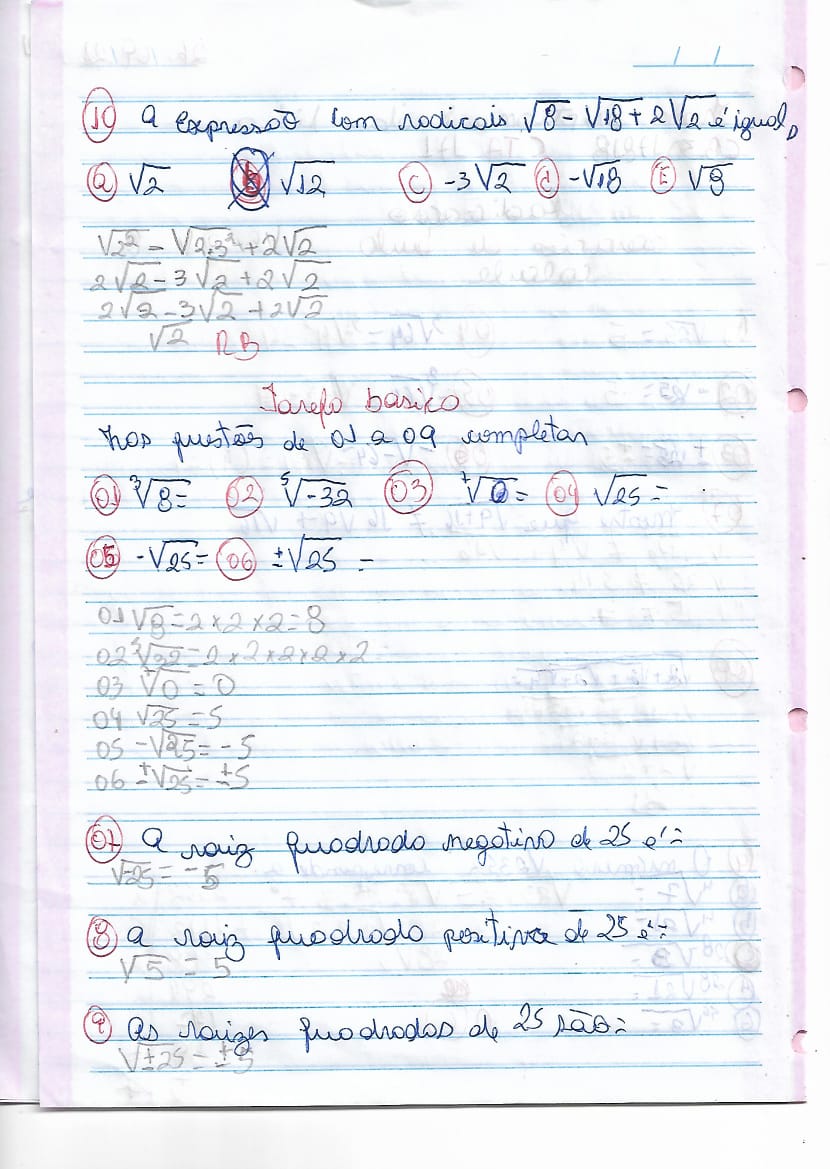 / /
10 A expressão com radicais √8 - √18 + 2√2 é igual,
a √2 b √12 c -3√2 d -√18 E √8
√2² - √2.3² + 2√2
2√2 - 3√2 + 2√2
2√2 - 3√2 + 2√2
√2 RB
Tarefa basica
nas questões de 01 a 09 completar
01 ³√8 = 02 ⁵√-32 03 ⁺√0 = 04 √25 =
05 -√25 = 06 ±√25 =
01 √8 = 2 x 2 x 2 = 8
02 ⁵√32 = 2 x 2 x 2 x 2 x 2
03 ⁺√0 = 0
04 √25 = 5
05 -√25 = -5
06 ±√25 = ±5
07 A raiz quadrada negativa de 25 é =
√-25 = -5
8 a raiz quadrada positiva de 25 é =
√5 = 5
9 As raizes quadradas de 25 são =
√±25 = ±5